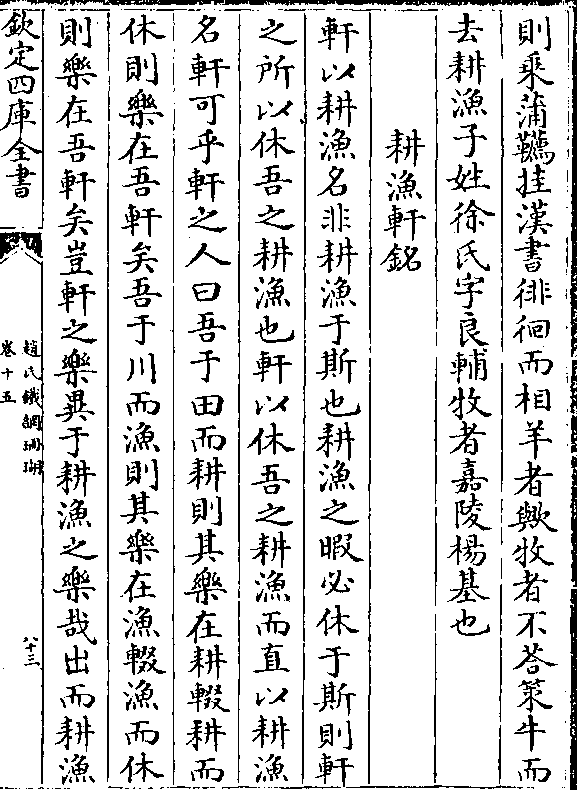 則乘蒲韉挂漢書徘徊而相羊者歟牧者不荅策牛而
去耕漁子姓徐氏字良輔牧者嘉陵楊基也
耕漁軒銘
軒以耕漁名非耕漁于斯也耕漁之暇必休于斯則軒
之所以休吾之耕漁也軒以休吾之耕漁而直以耕漁
名軒可乎軒之人曰吾于田而耕則其樂在耕輟耕而
休則樂在吾軒矣吾于川而漁則其樂在漁輟漁而休
則樂在吾軒矣豈軒之樂異于耕漁之樂哉出而耕漁
欽定四庫全書
趙氏鐵網珊瑚
卷十五
八十三